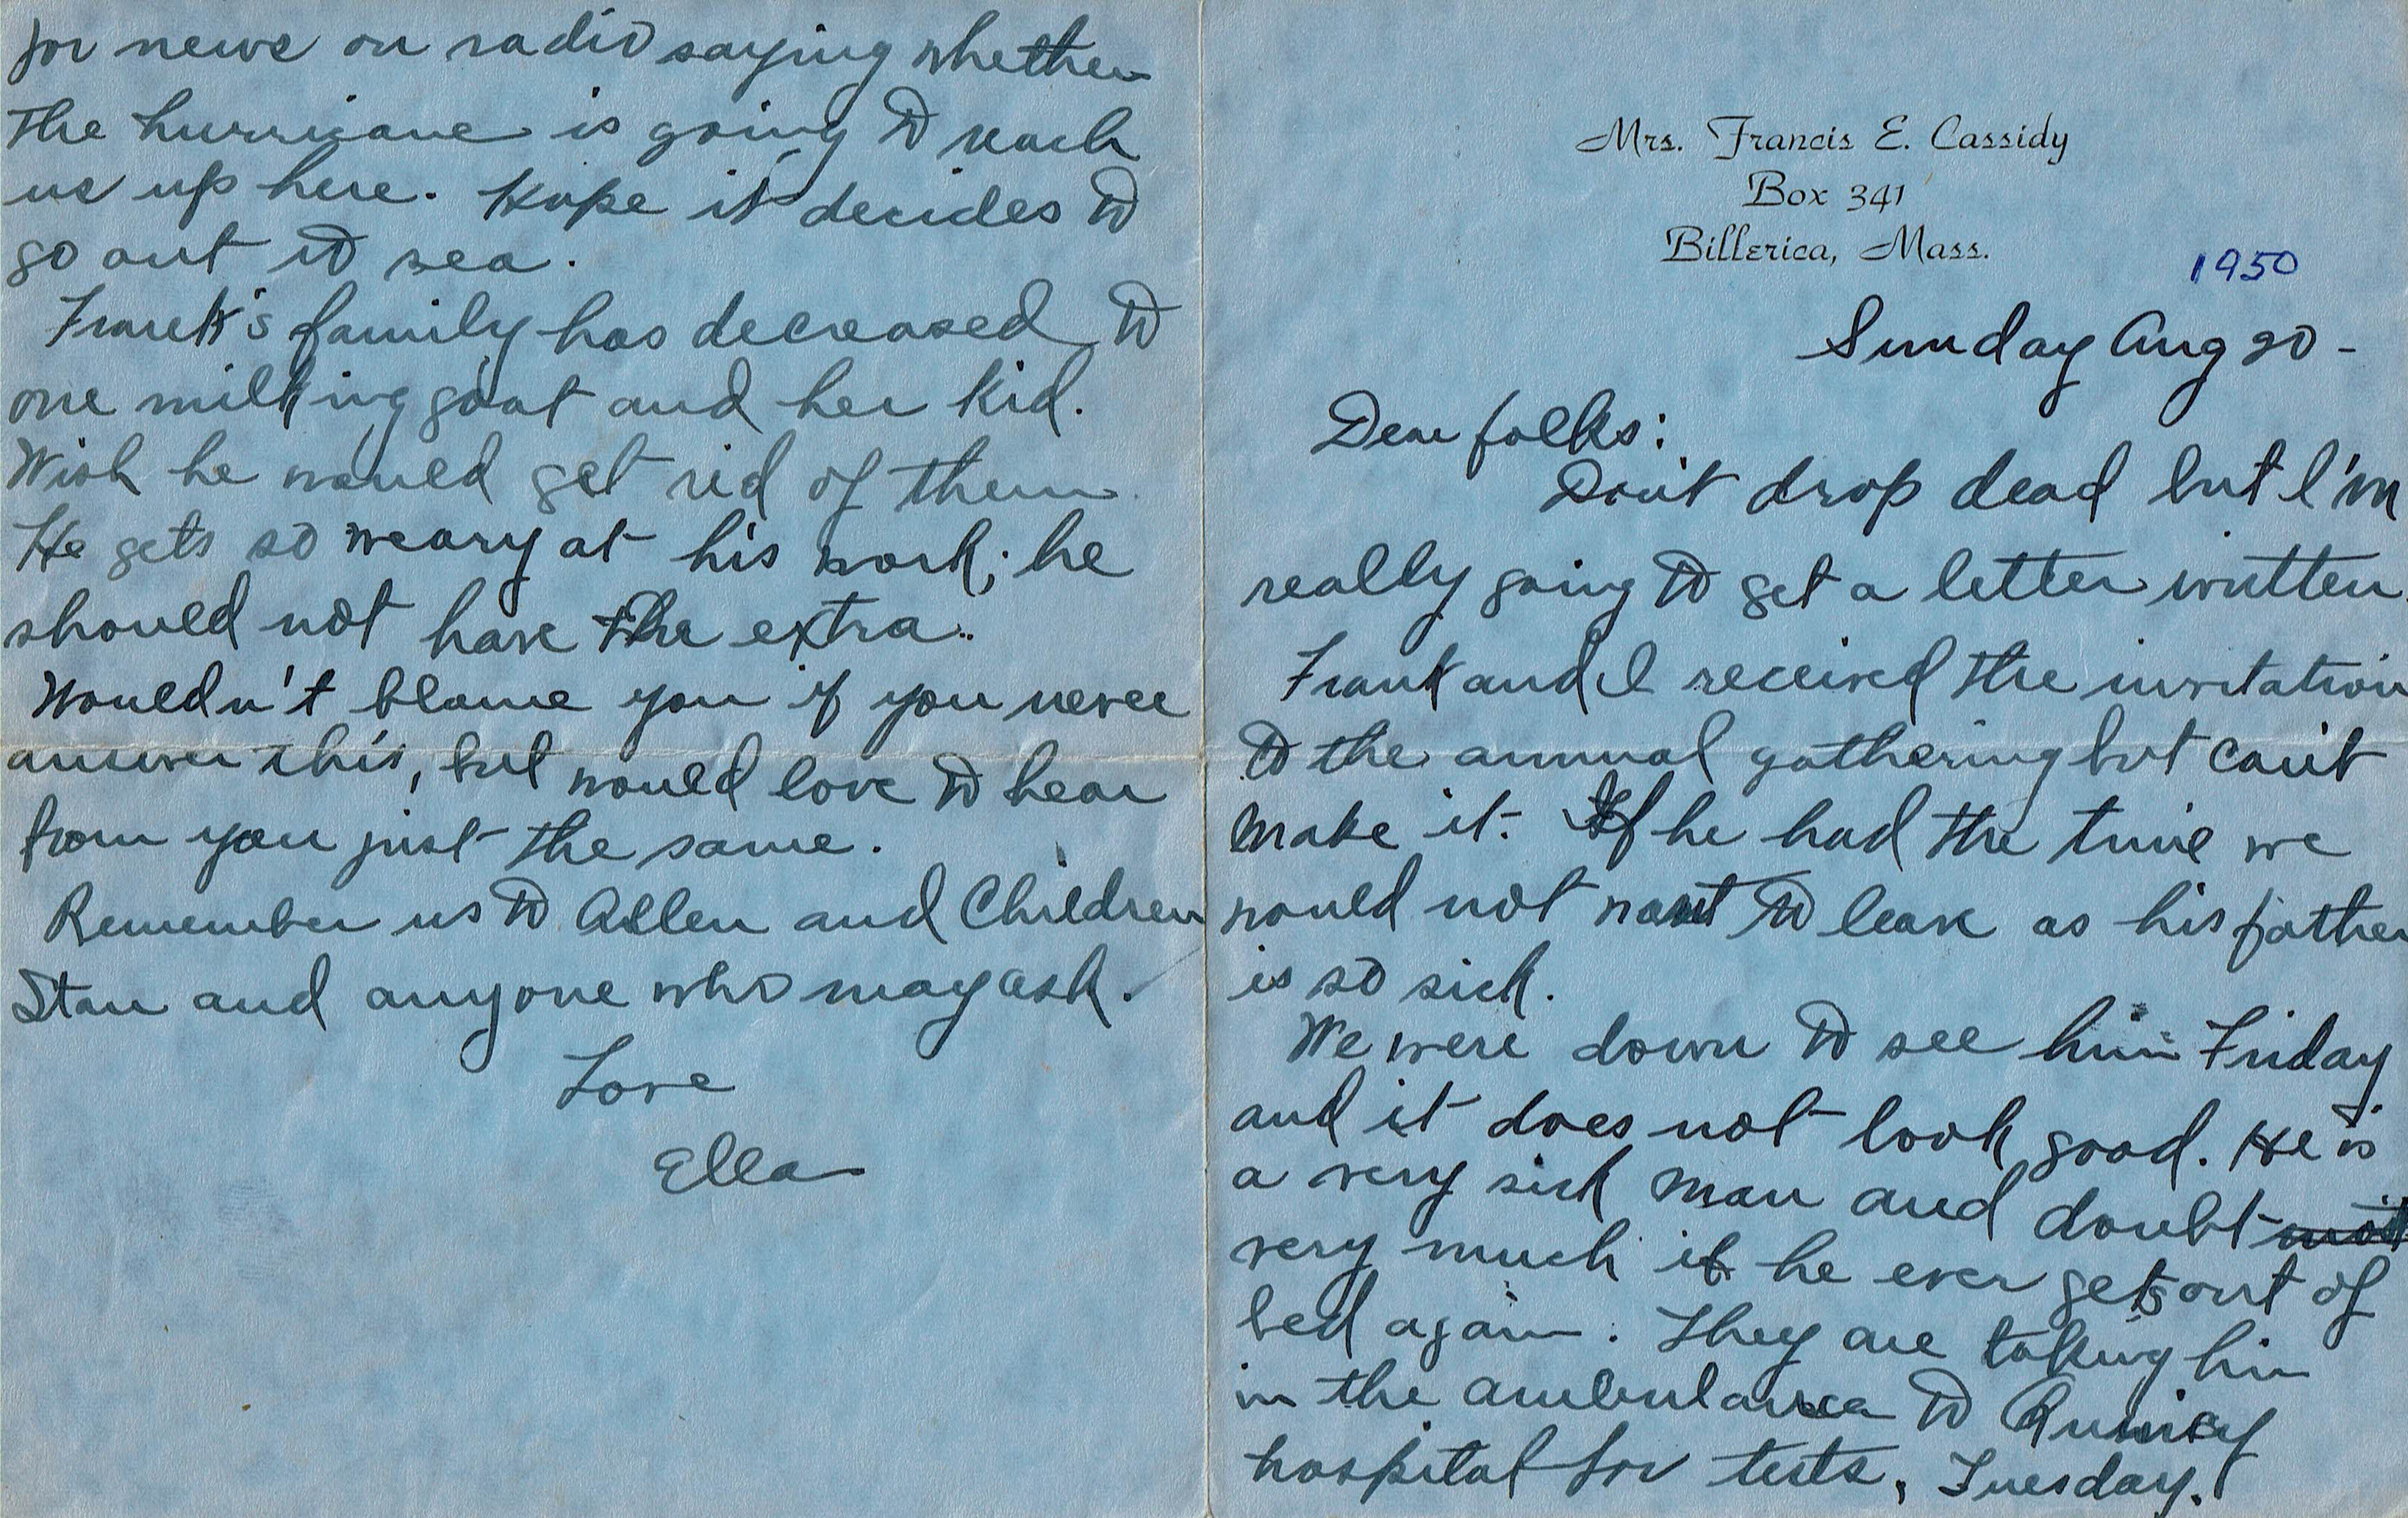 Mrs. Francis E. Cassidy
Box 341
Billerica, Mass.
1950
Sunday Aug 20 -
Dear folks:
Don't drop dead but I'm
really going to get a letter written.
Frank and I received the invitation
to the annual gathering but can't
make it. If he had the time we
would not want to leave as his father
is so sick.
We were down to see him Friday
and it does not look good. He is
a very sick man and doubt not
very much if he ever gets out of
bed again. They are taking him
in the ambulance to Quincy
hospital for tests, Tuesday.
for news on radio saying whether
the hurricane is going to reach
us up here. Hope it decides to
go out to sea.
Frank's family has decreased to
one milking goat and her kid.
Wish he would get rid of them.
He gets so weary at his work; he
should not have the extra.
Wouldn't blame you if you never
answer this, but would love to hear
from you just the same.
Remember us to Allen and Children
Stan and anyone who may ask.
Love
Ella